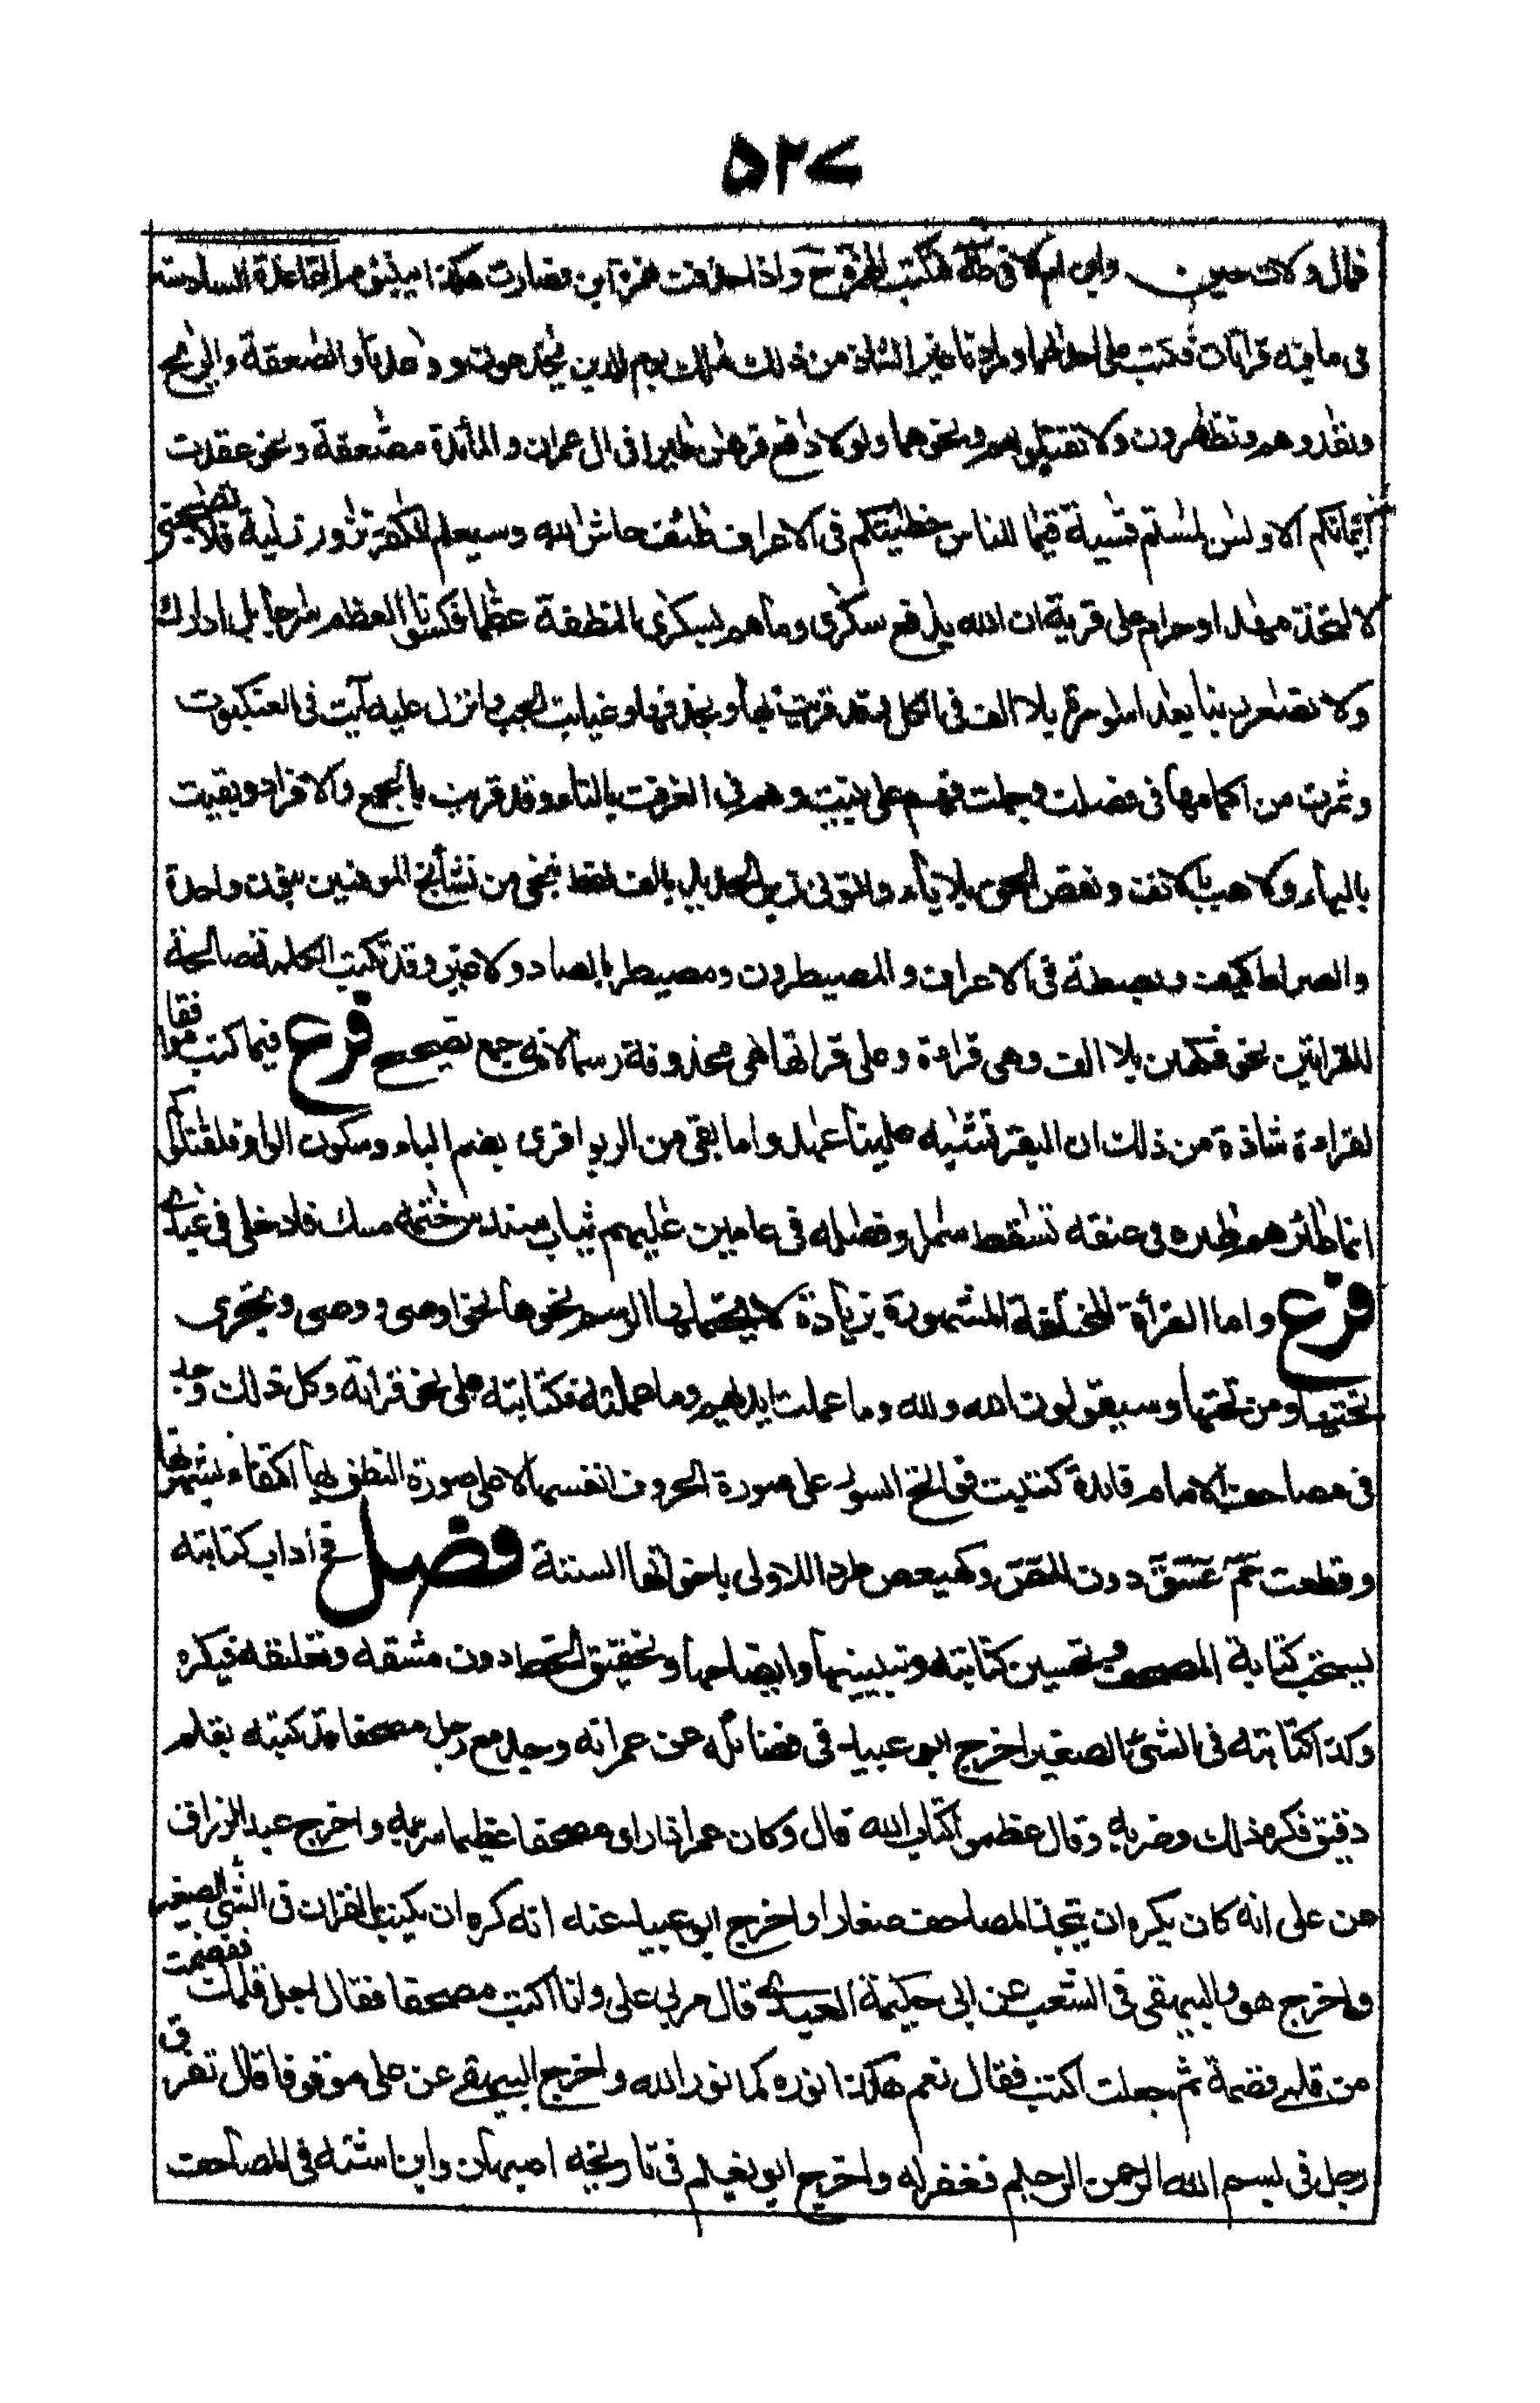 ٥٢٧
فمال ولات حين وابن ام الا في طه فكتب الهمزة ح واذا حذفت همزة ابن فصارت هكذا يبنؤم القاعدة السادسة
في ما فيه قراءتان فكتب على احداهما ومرادنا غير الشاذ من ذلك ملك يوم الدين يخدعون ووعدنا والصعقة والريح
وتفدوهم وتظهرون ولا تقتلوهم ونحوهما ولولا دفع فرهن طيرا في ال عمران والمائدة مضعفة ونحو عقدت
ايمانكم الاولين لمستم قسية قيما للناس خطيئتكم في الاعراف طئف حاش لله وسيعلم الكفر تزور زكية فلا تصحبني
لاتخذت مهدا وحرام على قرية ان الله يدفع سكرى وما هم بسكرى المضغة عظما فكسونا العظم سرجا بل ادارك
ولا تصعر ربنا بعد اسورة بلا الف في الكل وقد قرئت بها وبحذفها وغيابت الجب وانزل عليه آيت في العنكبوت
وثمرت من اكمامها في فصلت وجملت فهم على بينت وهم في الغرفت بالتاء وقد قرئت بالجمع والافراد وبقيت
بالياء ولاهب بالالف ونقص الحق بلا ياء واتوني زبر الحديد بالف فقط ننجي من نشاء ننج المومنين بنون واحدة
والصراط كيف وبصطة في الاعراف والمصيطرون ومصيطر بالصاد ولا غير وقد تكتب الكلمة صالحة
للقراءتين نحو فكهين بلا الف وهي قراءة وعلى قراتها هي محذوفة رسما لانه جمع تصحيح فرع فيما كتب موافقا
لقراءة شاذة من ذلك ان البقر تشبه علينا عهد واما بقي من الربو افرى بضم الباء وسكون الواو فلقتلوكم
انما طائرهم طيره في عنقه تسقط سمرا وفصله في عامين عليهم ثياب سندس ختمه مسك فادخلي في عبدي
فرع واما القرأة المختلفة المشهورة بزيادة لا يحتملها الرسم ونحوها نحو اوصى ووصى وتجري
تحتها ومن تحتها وسيقولون الله ولله وما عملت ايديهم وما عملته فكتابته على نحو قراته وكل ذلك وجد
في مصاحف الامام فائدة كتبت فواتح السور على صورة الحروف انفسها لا على صورة النطق بها اكتفاء بشهرتها
وقطعت حم عسق دون المص وكهيعص طردا للاولى باخواتها الستة فصل في اداب كتابته
يستحب كتابة المصحف وتحسين كتابته وتبيينها وايضاحها وتحقيق الخط دون مشقه وتعليقه فيكره
وكذا كتابته في الشئ الصغير اخرج ابو عبيد في فضائله عن عمر انه وجد مع رجل مصحفا قد كتبه بقلم
دقيق فكره ذلك وضربه وقال عظموا كتاب الله قال وكان عمر اذا راى مصحفا عظيما سر به واخرج عبد الرزاق
عن على انه كان يكره ان يتخذ المصاحف صغارا واخرج ابو عبيد عنه انه كره ان يكتب القران في الشئ الصغير
واخرج هو والبيهقى في الشعب عن ابي حكيمة العبدى قال مر بي على وانا اكتب مصحفا فقال اجل قلمك فقضمت
من قلمي قضمة ثم جعلت اكتب فقال نعم هكذا نوره كما نوره الله واخرج البيهقي عن على موقوفا قال تنوق
رجل في بسم الله الرحمن الرحيم فغفر له واخرج ابو نعيم في تاريخه اصبهان وابن اشته في المصاحف